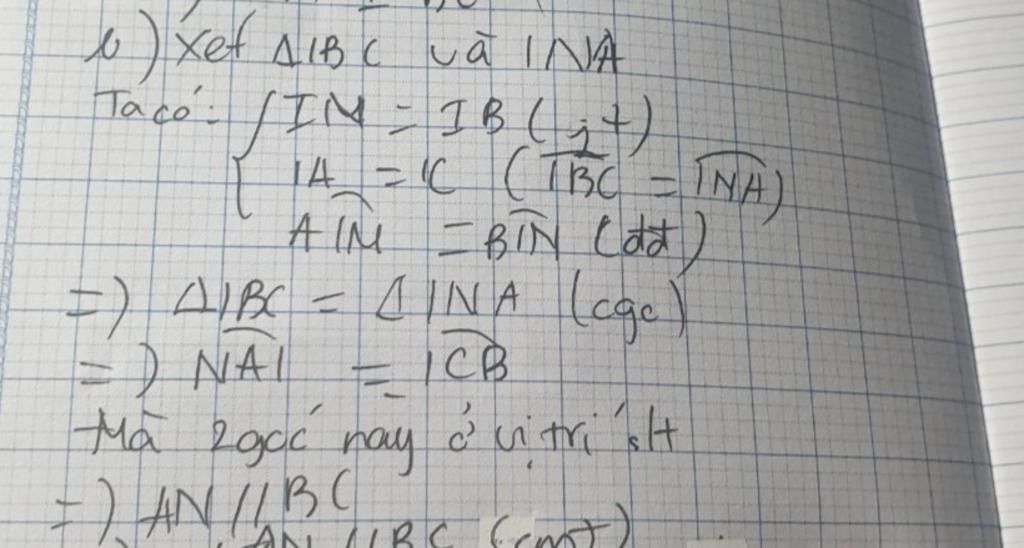 b) Xét Δ IBC và INA
Ta có: { IN = IB (gt)
IA = IC (IBC = INA)
AIM = BIN (đđ)
=) Δ IBC = Δ INA (cgc)
=) NAI = ICB
Mà 2 góc này ở vị trí slt
=) AN // BC
AN // BC (cmt)